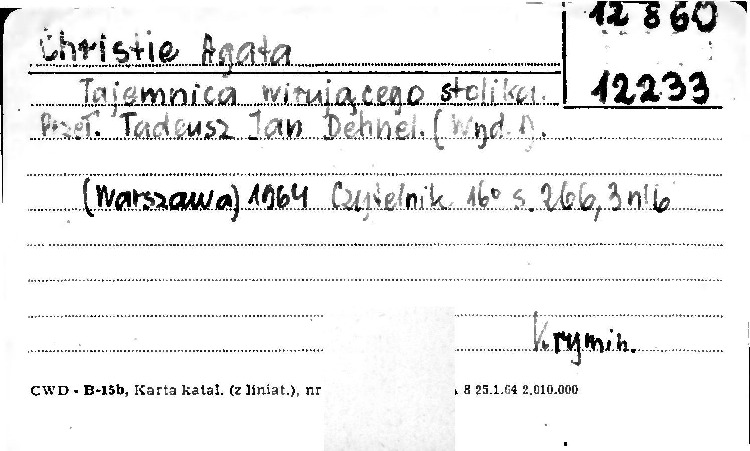 12 860
Christie Agata
12233
Tajemnica wirującego stolika.
Przeł. Tadeusz Jan Dehnel. (Wyd. 1).
(Warszawa) 1964 Czytelnik 16° s. 266, 3 nlb
Krymin.
CWD - B-15b, Karta katal. (z liniat.), nr 8 25.1.64 2.010.000